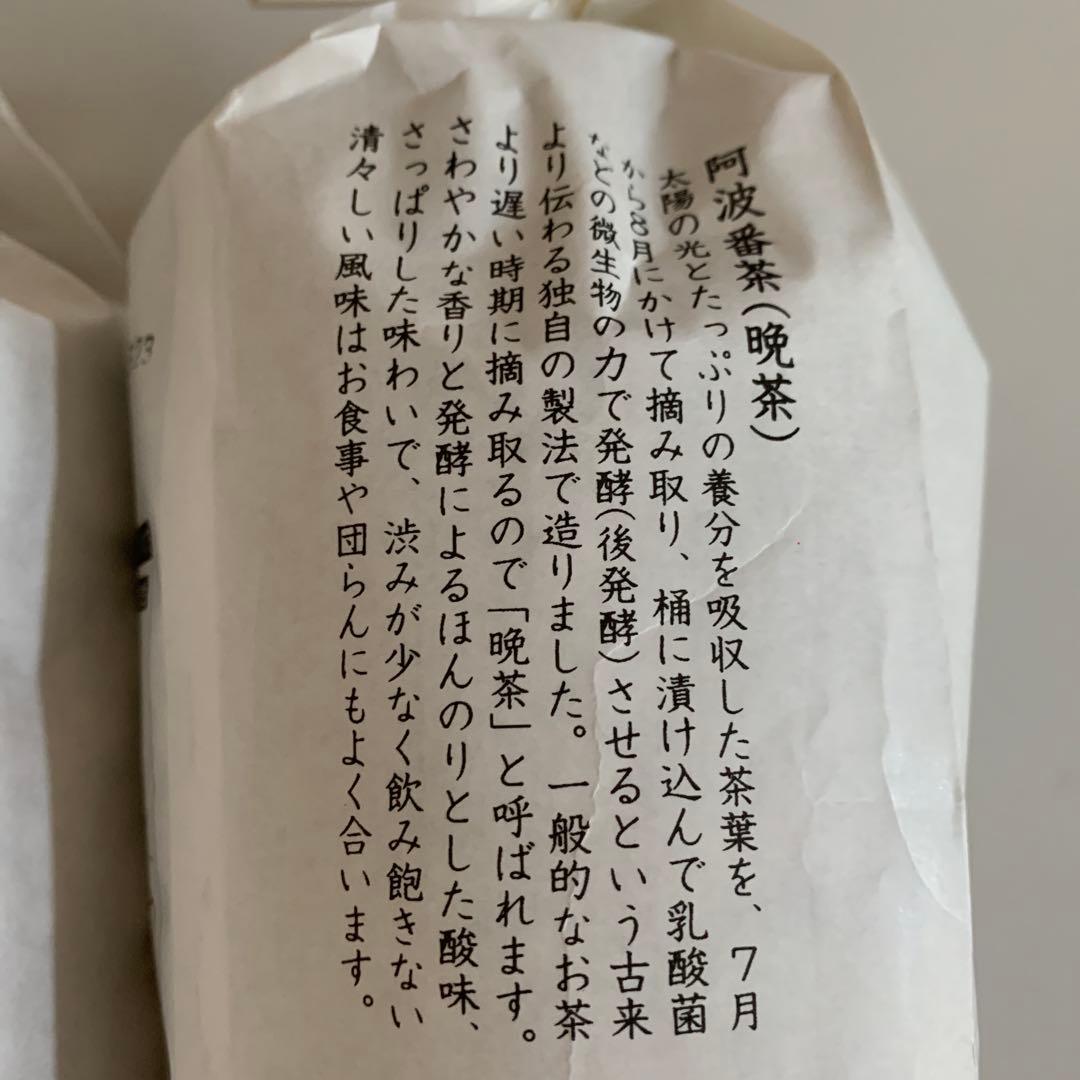 阿波番茶(晩茶)
太陽の光とたっぷりの養分を吸収した茶葉を、7月
から8月にかけて摘み取り、桶に漬け込んで乳酸菌
などの微生物の力で発酵(後発酵)させるという古来
より伝わる独自の製法で造りました。一般的なお茶
より遅い時期に摘み取るので「晩茶」と呼ばれます。
さわやかな香りと発酵によるほんのりとした酸味、
さっぱりした味わいで、渋みが少なく飲み飽きない
清々しい風味はお食事や団らんにもよく合います。